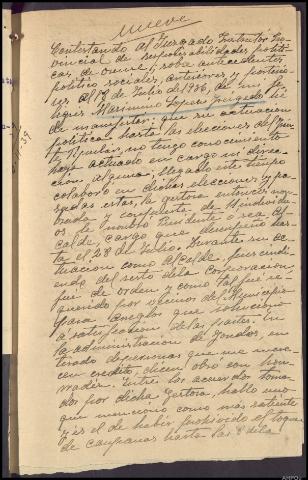 nueve
Contestando al Juzgado Instructor Pro-
vincial de responsabilidades políti-
cas de Orense, sobre antecedentes
político sociales, anteriores y posterio-
res al 18 de Julio de 1936, de mi fe-
ligres Maximino Lopez he
de manifestar: que su actuacion
politica, hasta las elecciones del Fren-
te Popular, no tengo conocimiento
haya actuado en cargo ni direc-
cion alguna; llegado este tiempo
colaboró en dichas elecciones y pa-
sadas estas, la gestora entonces nom-
brada y componente de individu-
os, le nombró Presidente o sea Al-
calde, cargo que desempeñó has-
ta el 28 de Julio. Durante su ac-
tuacion como Alcalde, prescindi-
endo del resto de la Corporacion,
fue de orden y como tal fue re-
querido por vecinos del Municipio
para arreglos que solucionó
a satisfaccion de las partes. En
la administracion de fondos, en-
terado de personas que me mere-
cen credito, dicen obró con hon-
radez. Entre los acuerdos toma-
dos por dicha Gestora, hallo uno
que menciono como mas saliente
y es el de haber prohibido el toque
de campanas hasta las 8 de la